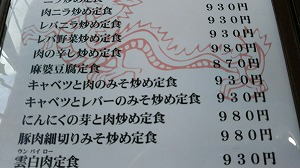 肉ニラ炒め定食 930円
レバニラ炒め定食 930円
レバ野菜炒め定食 930円
肉の辛し炒め定食 980円
麻婆豆腐定食 870円
キャベツと肉のみそ炒め定食 930円
キャベツとレバーのみそ炒め定食 930円
にんにくの芽と肉炒め定食 980円
豚肉細切りみそ炒め定食 980円
ウン パイ ロー
雲白肉定食 930円